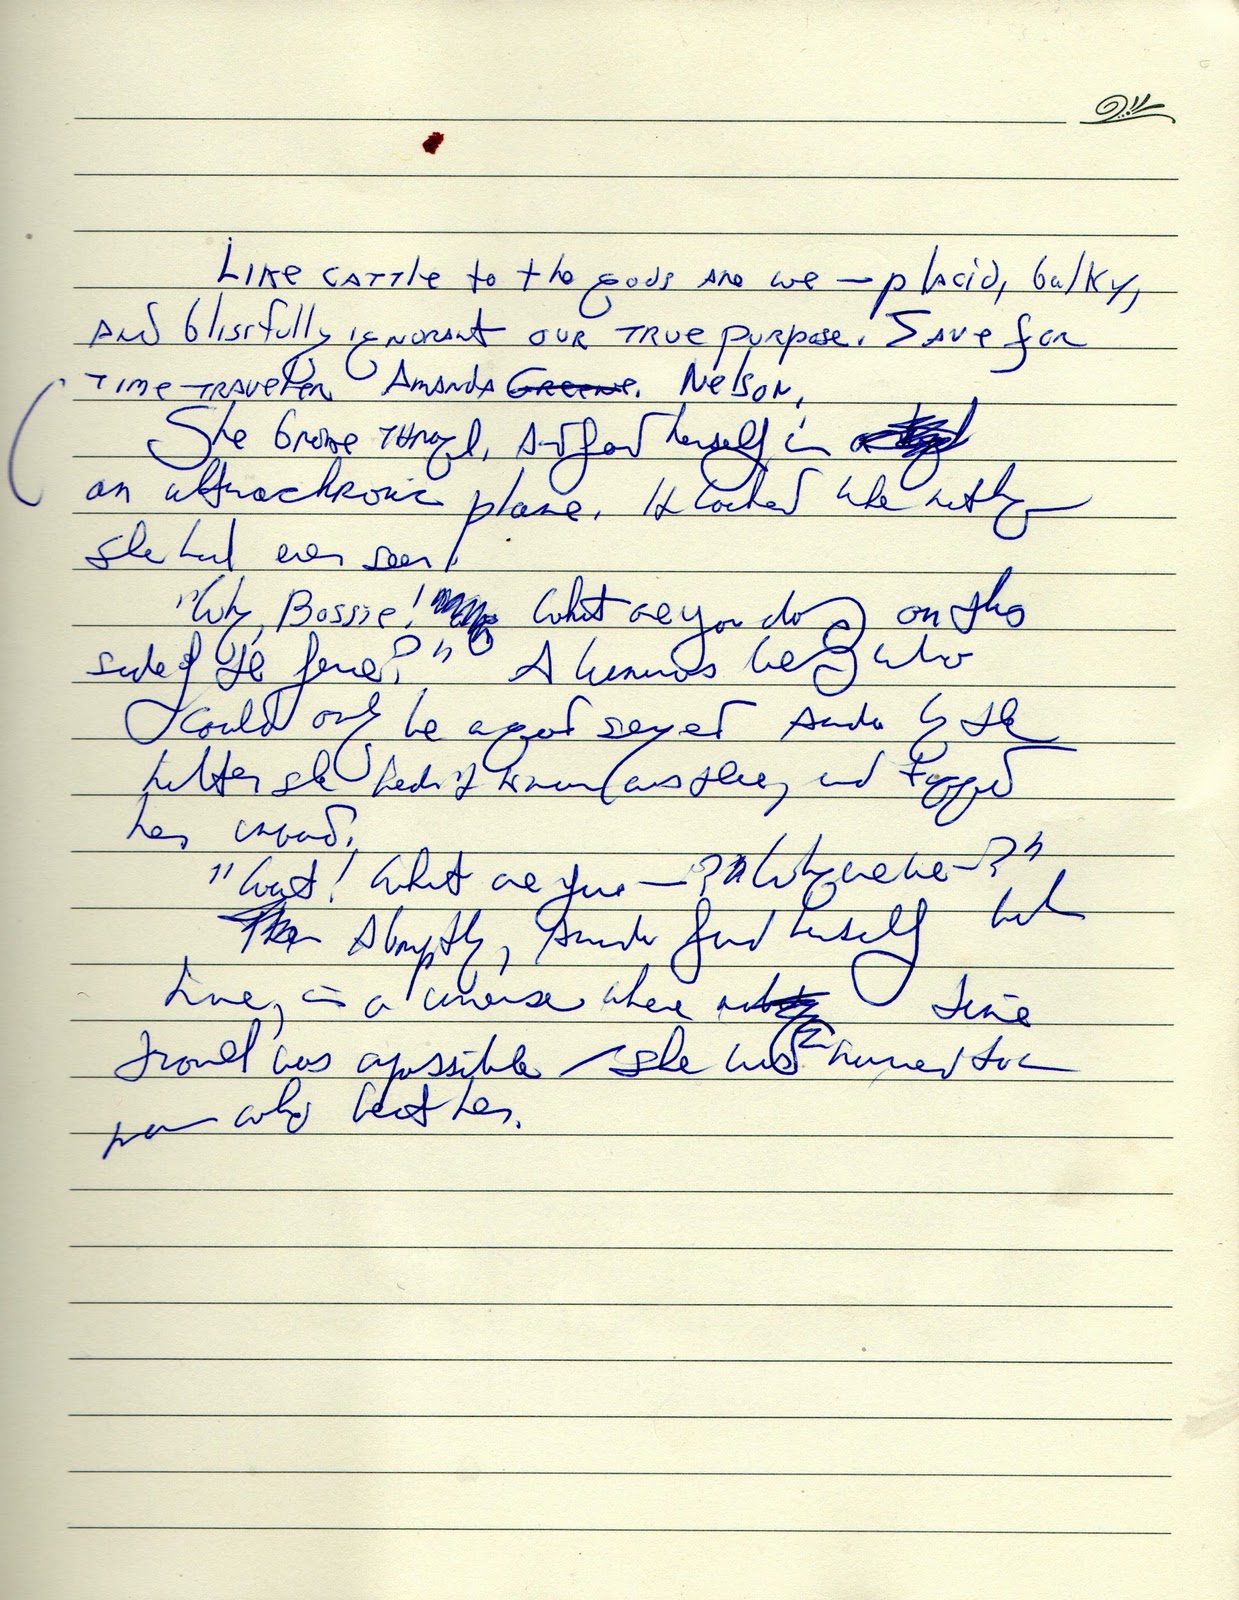 Like cattle to the gods are we — placid, bulky,
and blissfully ignorant our true purpose. Save for
time-traveller Amanda Greene. Nelson.
She broke through, and found herself in
an ultrachronic plane. It looked like nothing
she had ever seen!
"Why, Bossie! What are you doing on this
side of the fence?" A luminous being who
could only be a god seized Amanda by the
halter she hadn't known was there, and tugged
her inward.
"Wait! What are you —?" "Why are we —?"
Then Abruptly, Amanda found herself back
home, in a universe where time
travel was impossible she was
who her.